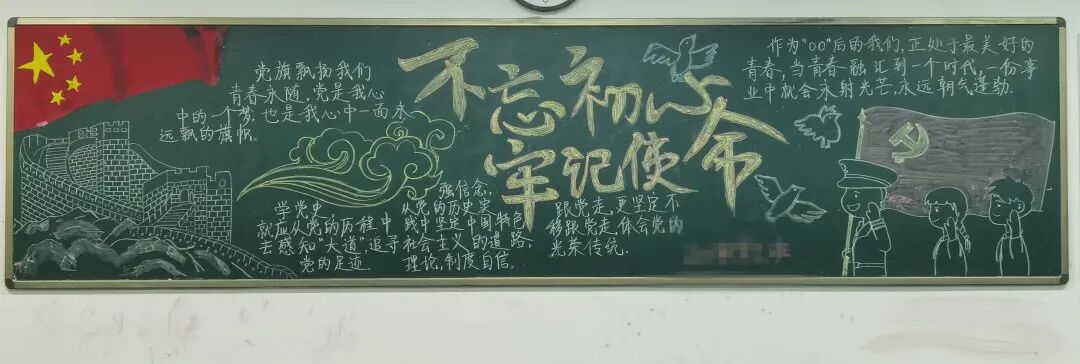 不忘初心
牢记使命
党旗飘扬我们
青春永随，党是我心
中的一个梦，也是我心中一面永
远飘的旗帜。
学党史
就应从党的历程中
去感知“大道”，追寻
党的足迹
强信念，
从党的历史实
践中坚定中国特色
社会主义的道路，
理论，制度自信。
跟党走，更坚定不
移跟党走，体会党的
光荣传统．
作为“00”后的我们，正处于最美好的
青春，当青春融汇到一个时代，一份事
业中就会永射光芒，永远朝气蓬勃．